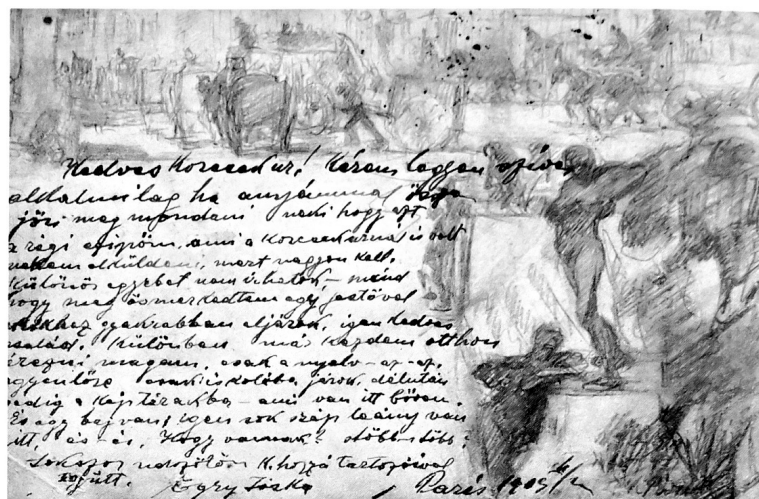 Kedves Korcsek úr! Kérem legyen szíves
alkalmilag ha anyámmal össze
jön megmondani neki hogy azt
a régi cipőm, ami a Korcsek úrnál is volt
nekem elküldeni, mert nagyon kell.
Különös egyebet nem írhatok – mind
hogy meg ösmerkedtem egy festővel
akikhez gyakrabban eljárok, igen kedves
család. Különben már kezdem otthon
érezni magam, csak a nyelv – az – az.
egyenlőre csak iskolába járok, délután
pedig a képtárakba – ami van itt bőven.
És egy baj van; igen sok szép leány van
itt, és és. Hogy vannak? többi – több?
Sokszor üdvözlöm H. hozzá tartozóival
együtt. Egry Jóska Paris 1905